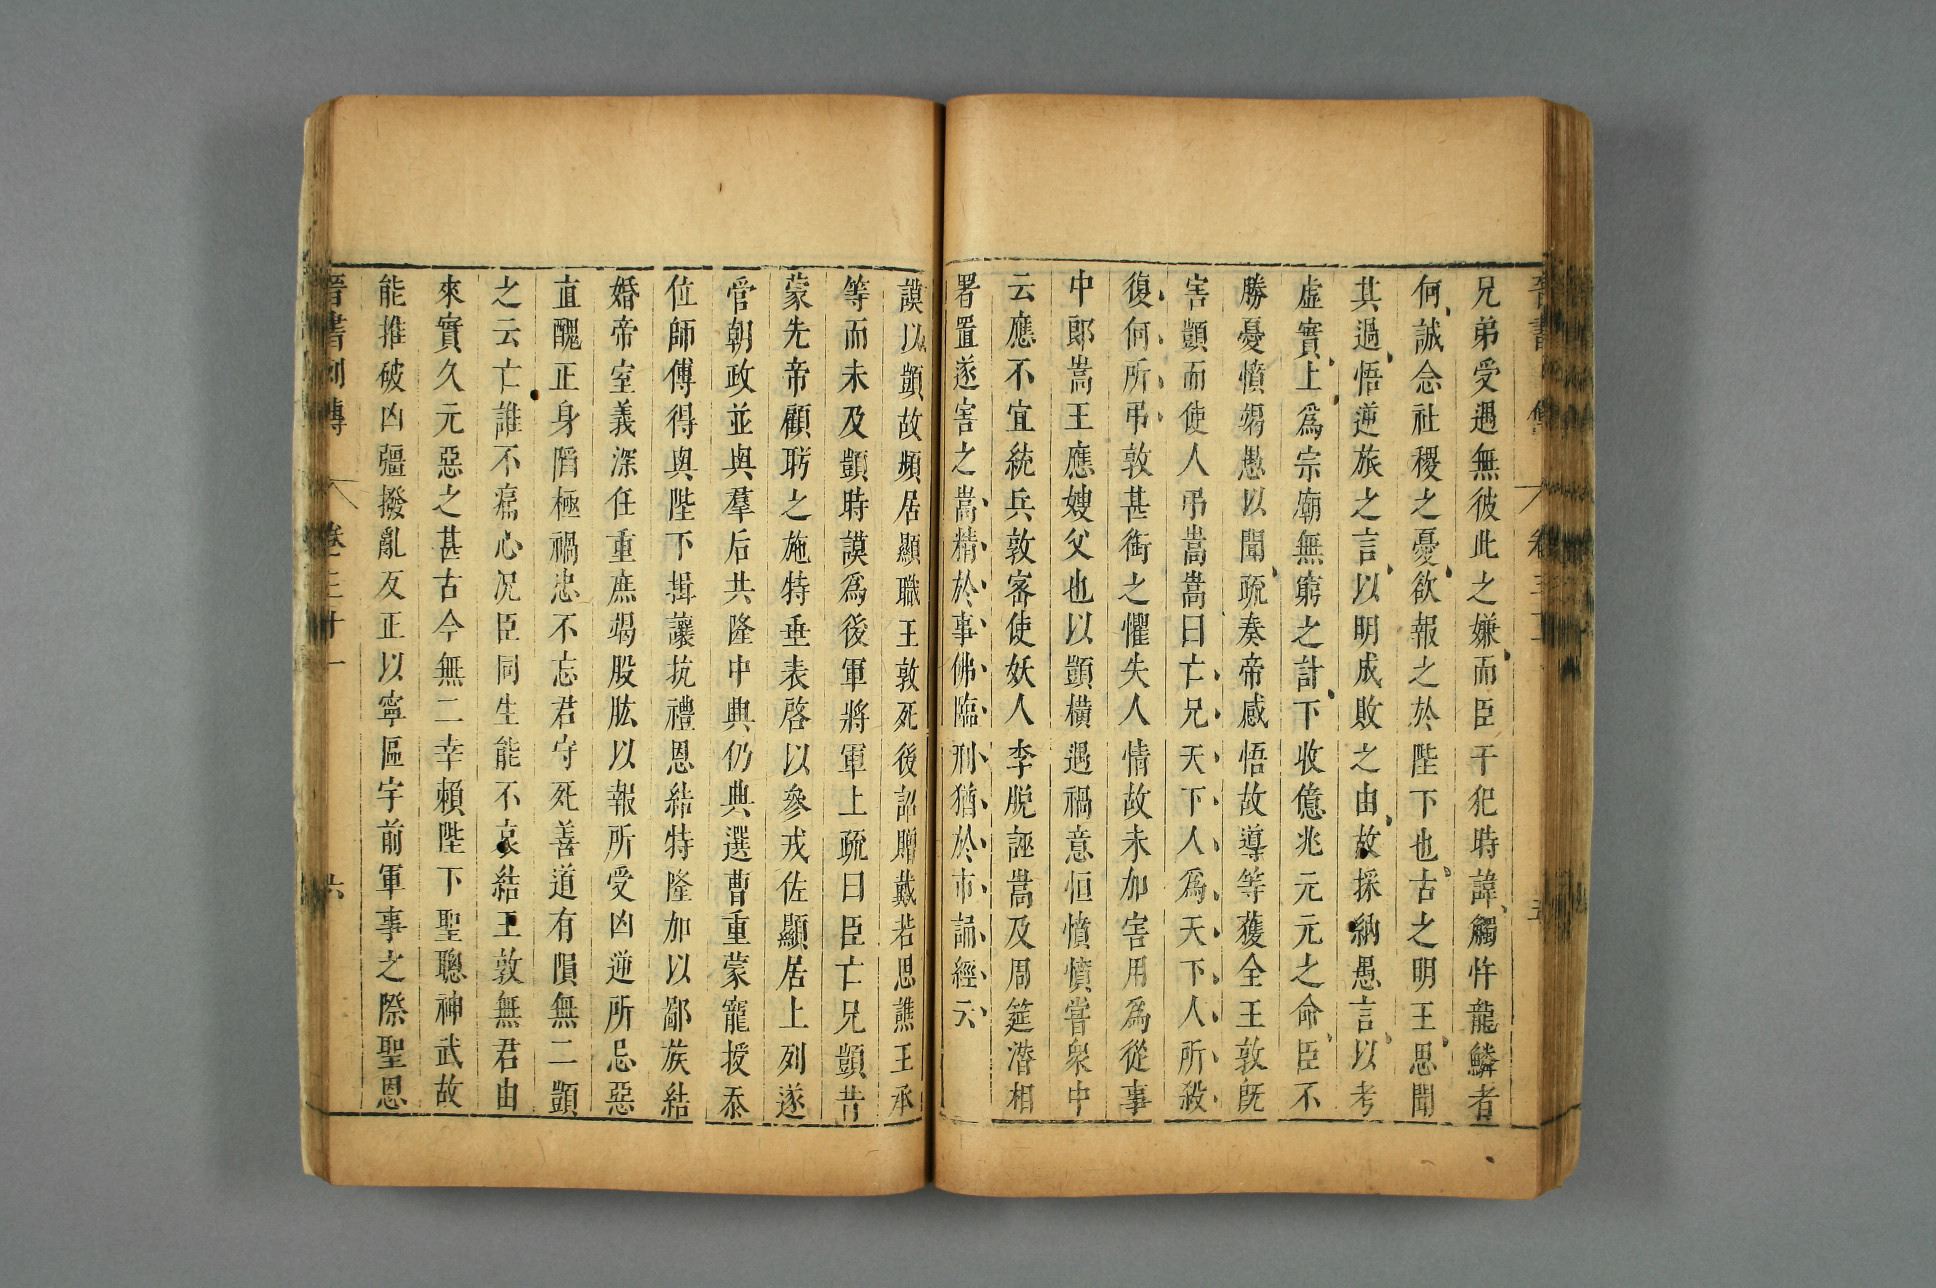 兄弟受遇無彼此之嫌而臣干犯時諱觸忤龍鱗者
何誠念社稷之憂欲報之於陛下也古之明王思聞
其過悟逆旅之言以明成敗之由故採納愚言以考
虛實上爲宗廟無窮之計下收億兆元元之命臣不
勝憂憤竭愚以聞疏奏帝感悟故導等獲全王敦旣
害顗而使人弔嵩嵩曰亡兄天下人爲天下人所殺
復何所弔敦甚銜之懼失人情故未加害用爲從事
中郎嵩王應嫂父也以顗橫遇禍意恒憤憤嘗衆中
云應不宜統兵敦密使妖人李脫誣嵩及周筵潛相
署置遂害之嵩精於事佛臨刑猶於市誦經云
謨以顗故頻居顯職王敦死後詔贈戴若思譙王承
等而未及顗時謨爲後軍將軍上疏曰臣亡兄顗昔
蒙先帝顧眄之施特垂表啓以參戎佐顯居上列遂
管朝政並與羣后共隆中興仍典選曹重蒙寵授忝
位師傅得與陛下揖讓抗禮恩結特隆加以鄙族結
婚帝室義深任重庶竭股肱以報所受凶逆所忌惡
直醜正身陷極禍忠不忘君守死善道有隕無二顗
之云亡誰不痛心況臣同生能不哀結王敦無君由
來實久元惡之甚古今無二幸賴陛下聖聰神武故
能推破凶彊撥亂反正以寧區宇前軍事之際聖恩
晉書列傳 卷三十一 六